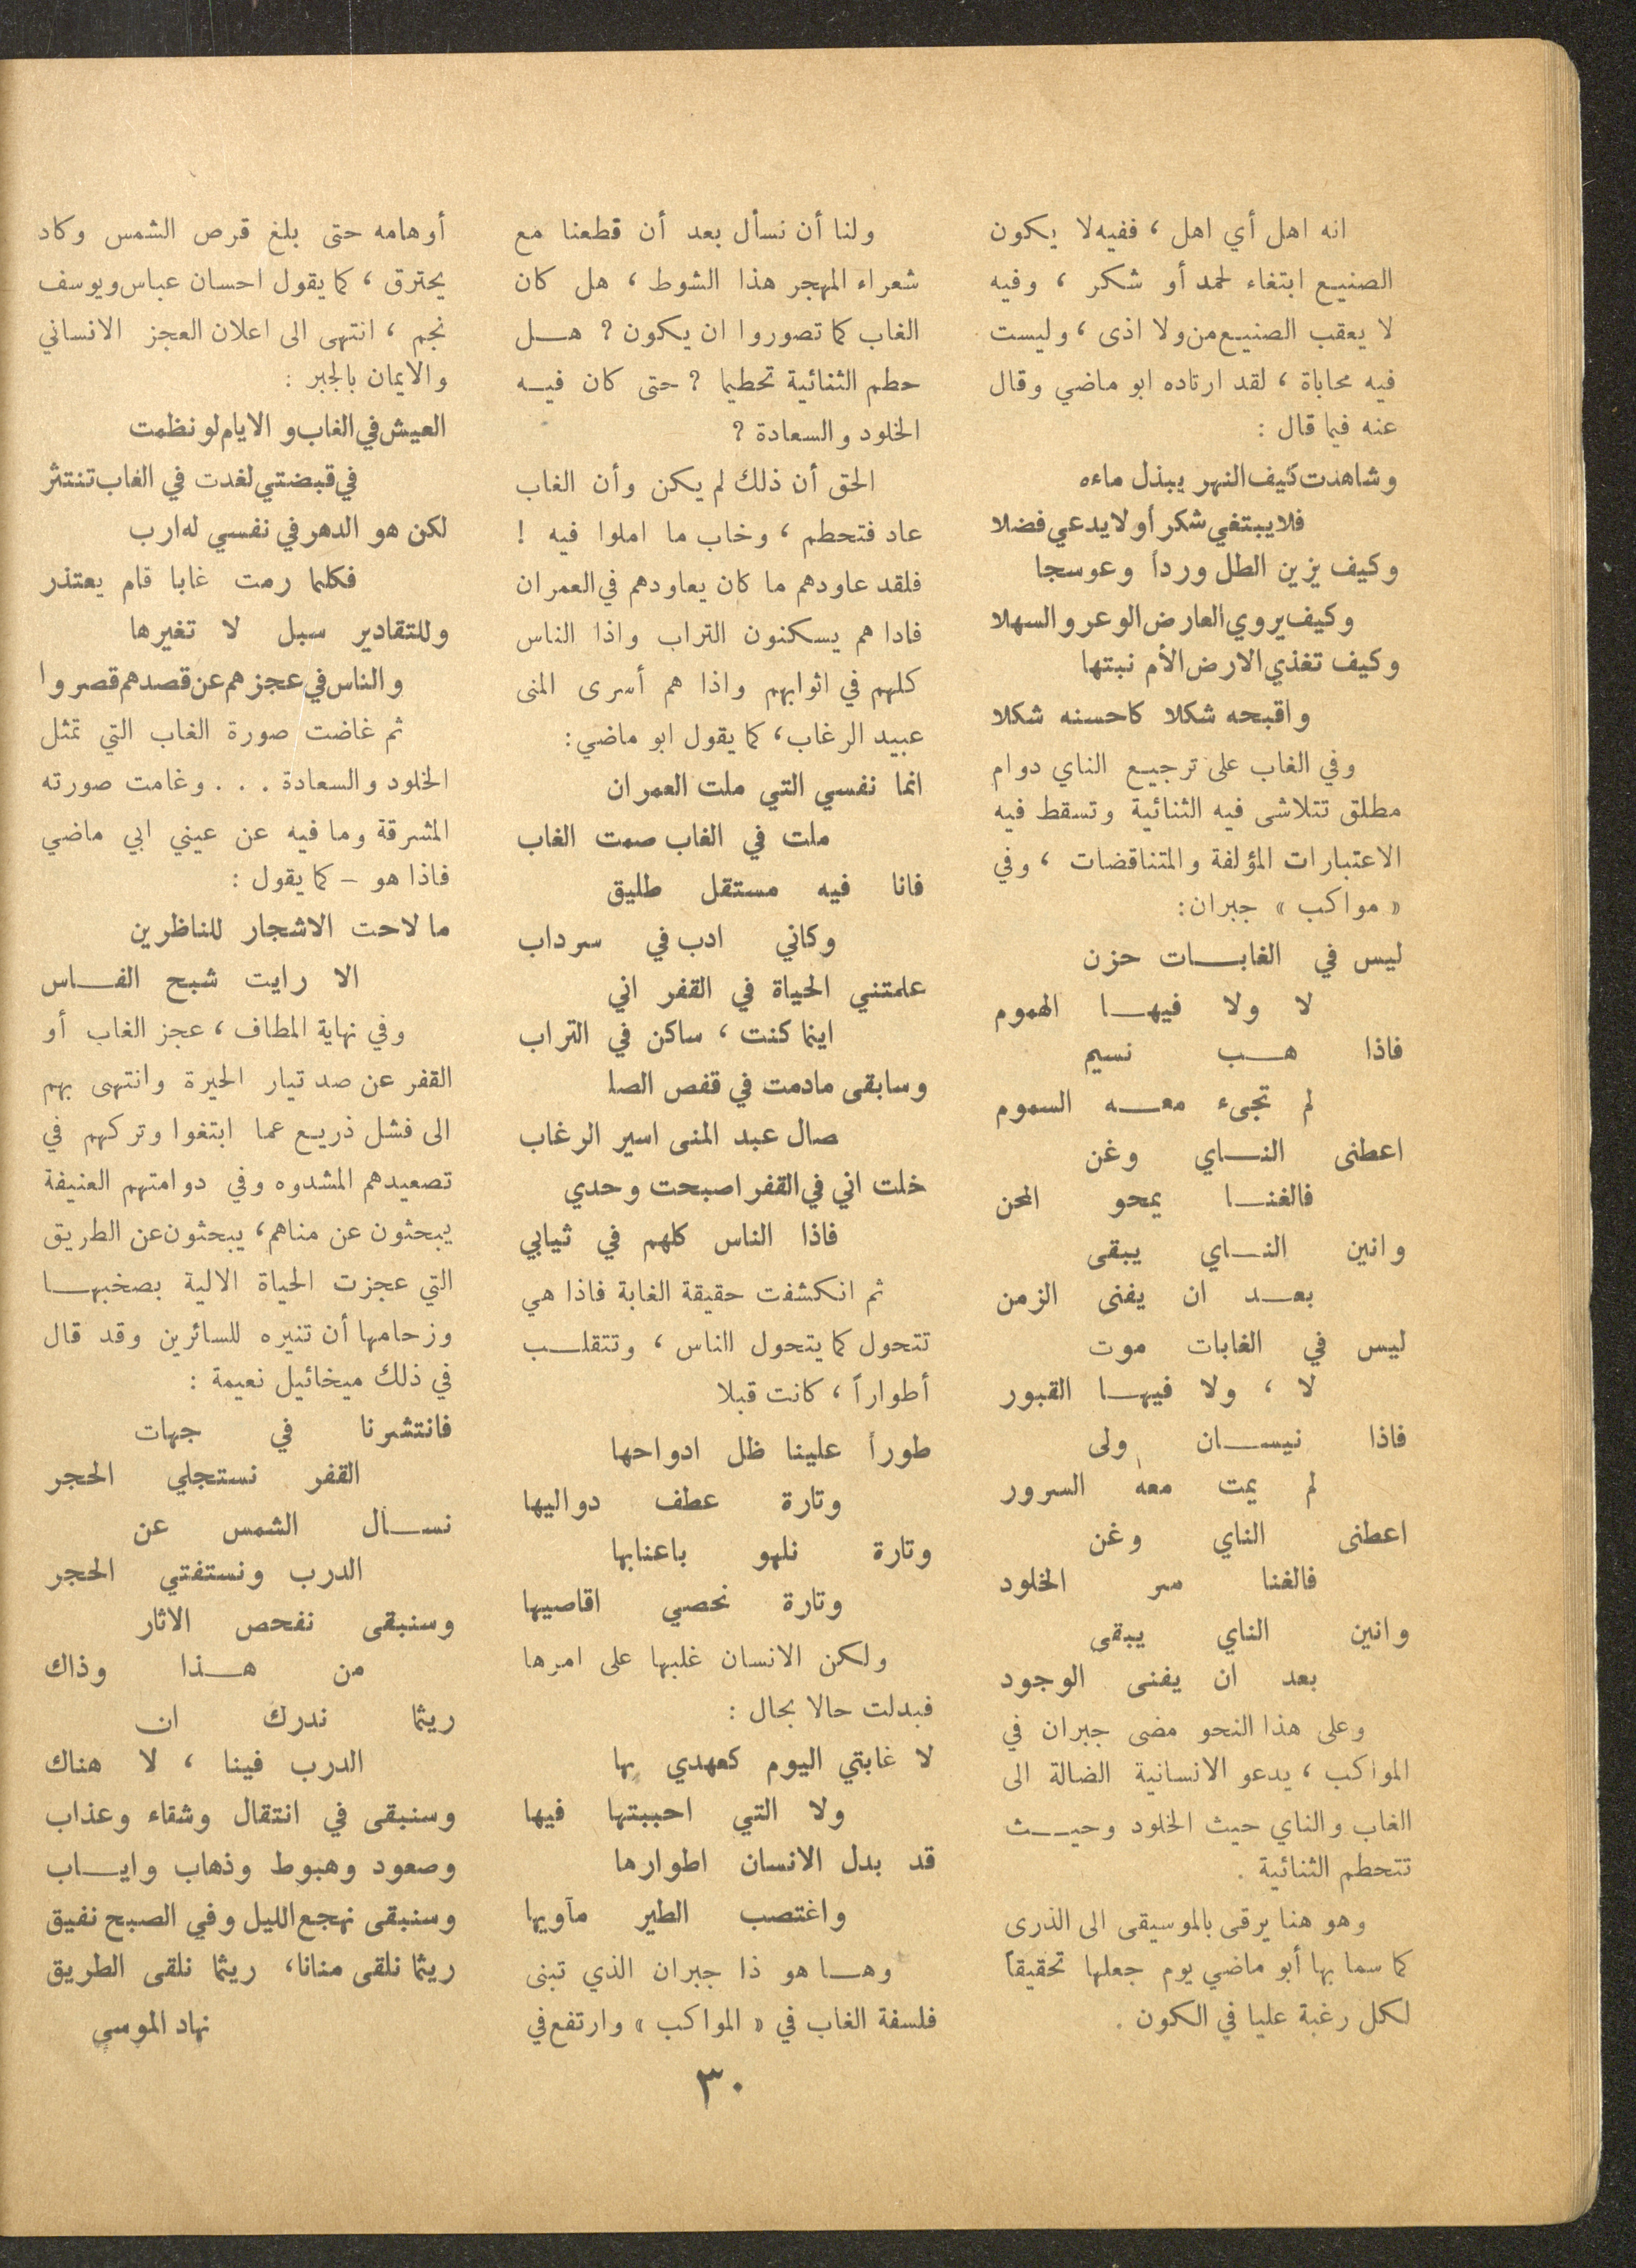 انه اهل أي اهل ، ففيه لا يكون
الصنيع ابتغاء لحمد أو شكر ، وفيه
لا يعقب الصنيع من ولا اذى ، وليست
فيه محاباة ، لقد ارتاده ابو ماضي وقال
عنه فيما قال :
وشاهدت كيف النهر يبذل ماءه
فلا يبتغي شكر أو لا يدعي فضلا
وكيف يزين الطل ورداً وعوسجا
وكيف يروي العارض الوعر والسهلا
وكيف تغذي الارض الأم نبتها
واقبحه شكلا كاحسنه شكلا
وفي الغاب على ترجيع الناي دوام
مطلق تتلاشى فيه الثنائية وتسقط فيه
الاعتبارات المؤلفة والمتناقضات ، وفي
« مواكب » جبران:
ليس في الغابات حزن
لا ولا فيها الهموم
فاذا هب نسيم
لم تجىء معه السموم
اعطنى الناي وغن
فالغنا يمحو المحن
وانين الناي يبقى
بعد ان يفنى الزمن
ليس في الغابات موت
لا ، ولا فيها القبور
فاذا نيسان ولى
لم يمت معه السرور
اعطنى الناي وغن
فالغنا سر الخلود
وانين الناي يبقى
بعد ان يفنى الوجود
وعلى هذا النحو مضى جبران في
المواكب ، يدعو الانسانية الضالة الى
الغاب والناي حيث الخلود وحيث
تتحطم الثنائية .
وهو هنا يرقى بالموسيقى الى الذرى
كما سما بها أبو ماضي يوم جعلها تحقيقاً
لكل رغبة عليا في الكون .
ولنا أن نسأل بعد أن قطعنا مع
شعراء المهجر هذا الشوط ، هل كان
الغاب كما تصوروا ان يكون ? هل
حطم الثنائية تحطيما ? حتى كان فيه
الخلود والسعادة ?
الحق أن ذلك لم يكن وأن الغاب
عاد فتحطم ، وخاب ما املوا فيه !
فلقد عاودهم ما كان يعاودهم في العمران
فادا هم يسكنون التراب واذا الناس
كلهم في اثوابهم واذا هم أسرى المنى
عبيد الرغاب ، كما يقول ابو ماضي:
انما نفسي التي ملت العمران
ملت في الغاب صمت الغاب
فانا فيه مستقل طليق
وكاني ادب في سرداب
علمتني الحياة في القفر اني
اينما كنت ، ساكن في التراب
وسابقى مادمت في قفص الصا
صال عبد المنى اسير الرغاب
خلت اني في القفر اصبحت وحدي
فاذا الناس كلهم في ثيابي
ثم انكشفت حقيقة الغابة فاذا هي
تتحول كما يتحول الناس ، وتتقلب
أطواراً ، كانت قبلا
طوراً علينا ظل ادواحها
وتارة عطف دواليها
وتارة نلهو باعنابها
وتارة نحصي اقاصيها
ولكن الانسان غلبها على امرها
فبدلت حالا بحال :
لا غابتي اليوم كعهدي بها
ولا التي احببتها فيها
قد بدل الانسان اطوارها
واغتصب الطير مآويها
وها هو ذا جبران الذي تبنى
فلسفة الغاب في « المواكب » وارتفع في
أوهامه حتى بلغ قرص الشمس وكاد
يحترق ، كما يقول احسان عباس ويوسف
نجم ، انتهى الى اعلان العجز الانساني
والايمان بالجبر :
العيش في الغاب و الايام لو نظمت
في قبضتي لغدت في الغاب تنتثر
لكن هو الدهر في نفسي له ارب
فكلما رمت غابا قام يعتذر
وللتقادير سبل لا تغيرها
والناس في عجزهم عن قصدهم قصروا
ثم غاضت صورة الغاب التي تمثل
الخلود والسعادة . . . وغامت صورته
المشرقة وما فيه عن عيني ابي ماضي
فاذا هو - كما يقول :
ما لاحت الاشجار للناظرين
الا رايت شبح الفاس
وفي نهاية المطاف ، عجز الغاب أو
القفر عن صد تيار الحيرة وانتهى بهم
الى فشل ذريع عما ابتغوا وتركهم في
تصعيدهم المشدوه وفي دوامتهم العنيفة
يبحثون عن مناهم ، يبحثون عن الطريق
التي عجزت الحياة الالية بصخبها
وزحامها أن تنيره للسائرين وقد قال
في ذلك ميخائيل نعيمة :
فانتشرنا في جهات
القفر نستجلي الحجر
نسأل الشمس عن
الدرب ونستفتي الحجر
وسنبقى نفحص الاثار
من هذا وذاك
ريثما ندرك ان
الدرب فينا ، لا هناك
وسنبقى في انتقال وشقاء وعذاب
وصعود وهبوط وذهاب واياب
وسنبقى نهجع الليل وفي الصبح نفيق
ريثما نلقى منانا، ريثما نلقى الطريق
نهاد الموسى
٣٠